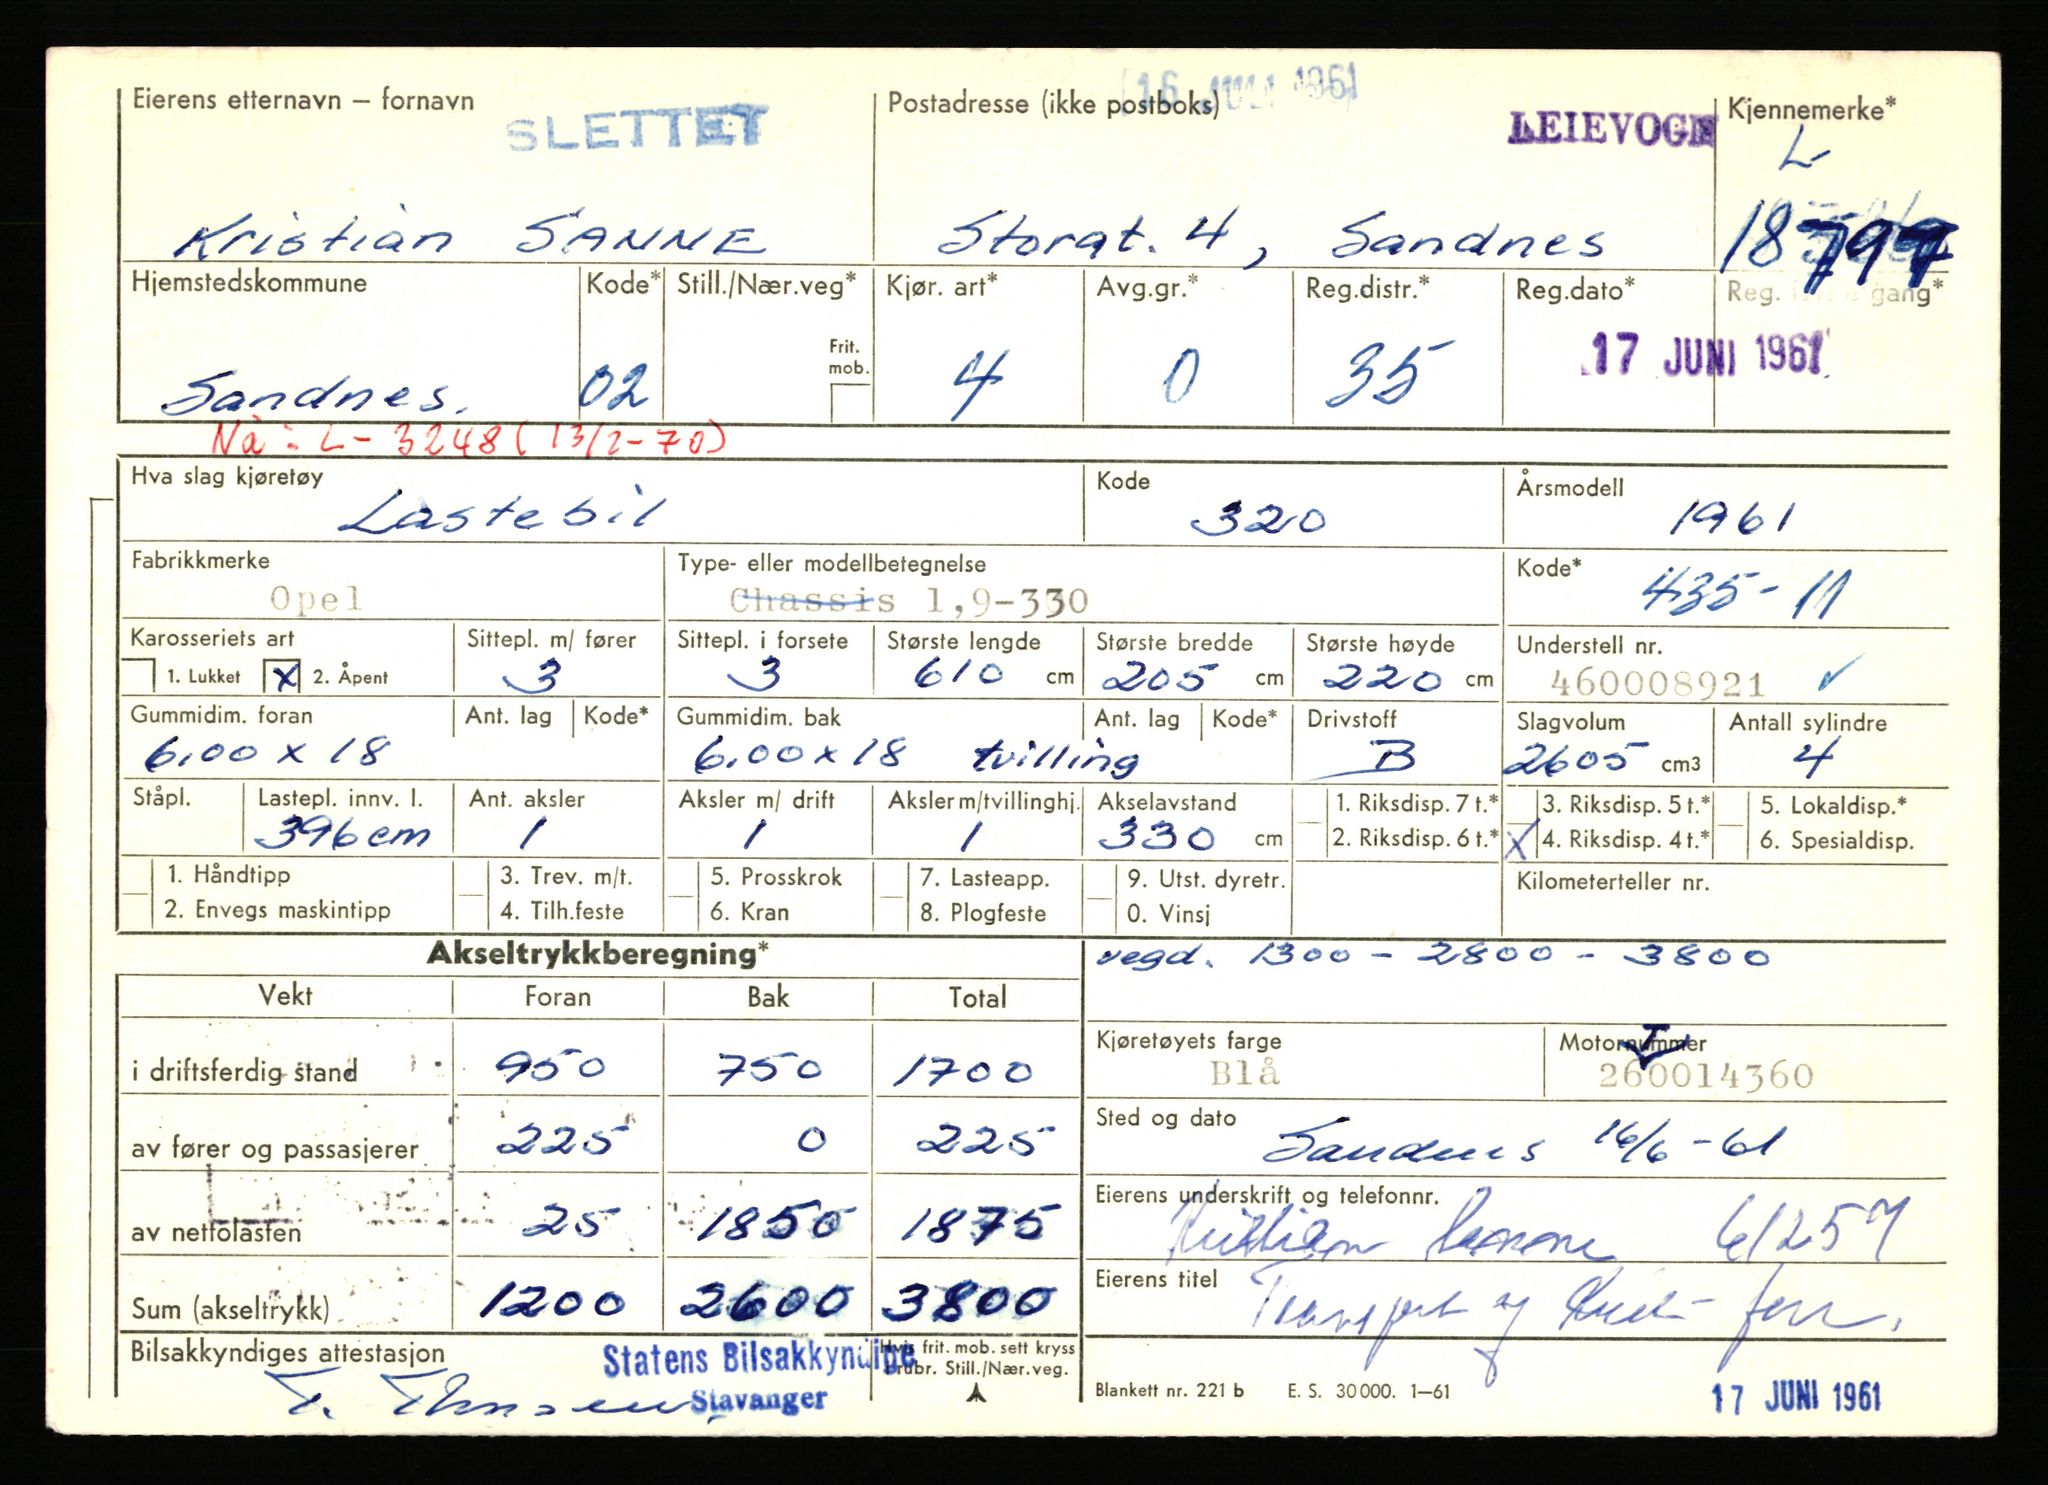 16 1961
Eierens etternavn – fornavn
SLETTET
Postadresse (ikke postboks)
LEIEVOGN
Kjennemerke*
L
Kristian SANNE
Storgt. 4, Sandnes
18797
Hjemstedskommune Kode* Still./Nær.veg* Kjør. art* Avg.gr.* Reg.distr.* Reg.dato* Reg. gang*
Frit. mob.
Sandnes. 02 4 0 35 17 JUNI 1961
Nå: L-3248 (13/2-70)
Hva slag kjøretøy Kode Årsmodell
Lastebil 320 1961
Fabrikkmerke Type- eller modellbetegnelse Kode*
Opel Chassis 1,9-330 435-11
Karosseriets art Sittepl. m/ fører Sittepl. i forsete Største lengde Største bredde Største høyde Understell nr.
1. Lukket x 2. Åpent 3 3 610 cm 205 cm 220 cm 460008921
Gummidim. foran Ant. lag Kode* Gummidim. bak Ant. lag Kode* Drivstoff Slagvolum Antall sylindre
6.00 x 18 6.00 x 18 tvilling B 2605 cm3 4
Ståpl. Lastepl. innv. l. Ant. aksler Aksler m/ drift Aksler m/tvillinghj. Akselavstand 1. Riksdisp. 7 t.* 3. Riksdisp. 5 t.* 5. Lokaldisp.*
396 cm 1 1 1 330 cm 2. Riksdisp. 6 t.* X 4. Riksdisp. 4 t.* 6. Spesialdisp.
1. Håndtipp 3. Trev. m/t. 5. Prosskrok 7. Lasteapp. 9. Utst. dyretr. Kilometerteller nr.
2. Envegs maskintipp 4. Tilh.feste 6. Kran 8. Plogfeste 0. Vinsj
Akseltrykkberegning*
vegd. 1300 - 2800 - 3800
Vekt Foran Bak Total
i driftsferdig stand 950 750 1700
Kjøretøyets farge Motornummer
Blå 260014360
av fører og passasjerer 225 0 225
Sted og dato
Sandnes 16/6-61
av nettolasten 25 1850 1875
Eierens underskrift og telefonnr.
Kristian Sanne 61257
Sum (akseltrykk) 1200 2600 3800
Eierens titel
Transport og
Bilsakkyndiges attestasjon
Statens Bilsakkyndige
Stavanger
Hvis frit. mob. sett kryss
i rubr. Still./Nær.veg.
Blankett nr. 221 b E. S. 30 000. 1–61
17 JUNI 1961